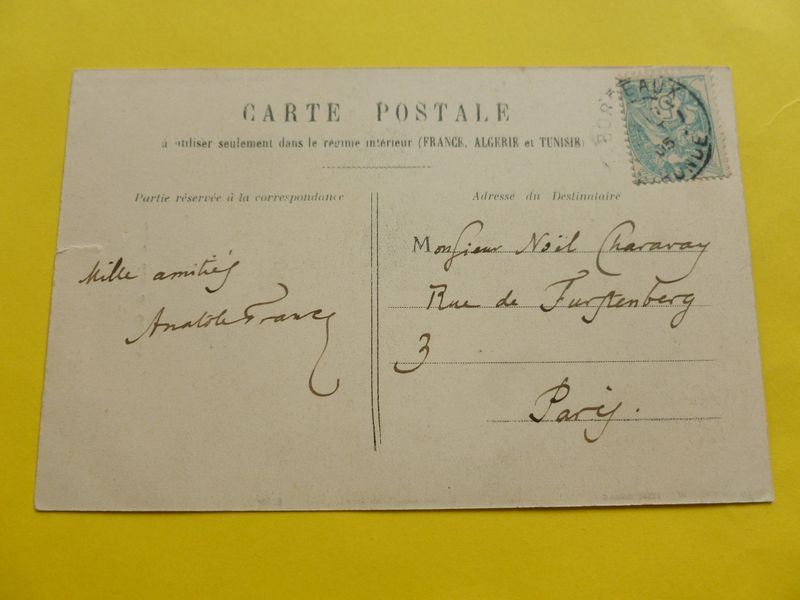 CARTE POSTALE
à utiliser seulement dans le régime intérieur (FRANCE, ALGERIE et TUNISIE)
Partie réservée à la correspondance
Adresse du Destinataire
Mille amitiés
Anatole France
Monsieur Noël Charavay
Rue de Furstenberg
3
Paris.
BORDEAUX
05
GIRONDE